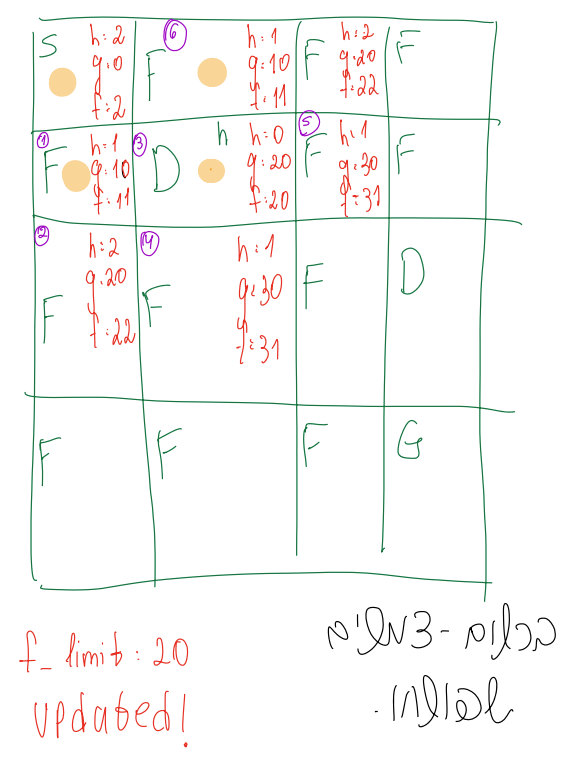 S
h:2
g:0
f:2
6
F
h:1
g:10
f:11
F
h:2
g:20
f:22
F
1
F
h:1
g:10
f:11
3
D
h
h:0
g:20
f:20
5
F
h:1
g:30
f:31
F
2
F
h:2
g:20
f:22
4
F
h:1
g:30
f:31
F
D
F
F
F
G
f_limit: 20
updated!